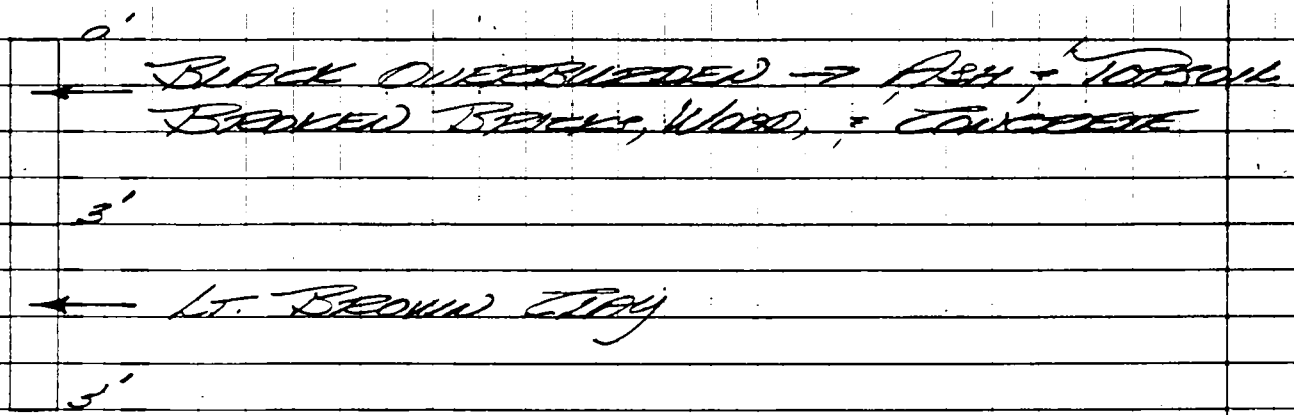 0'
BLACK OVERBURDEN → ASH & TOPSOIL
BROKEN BRICKS, WOOD, & CONCRETE
3'
LT. BROWN CLAY
3'